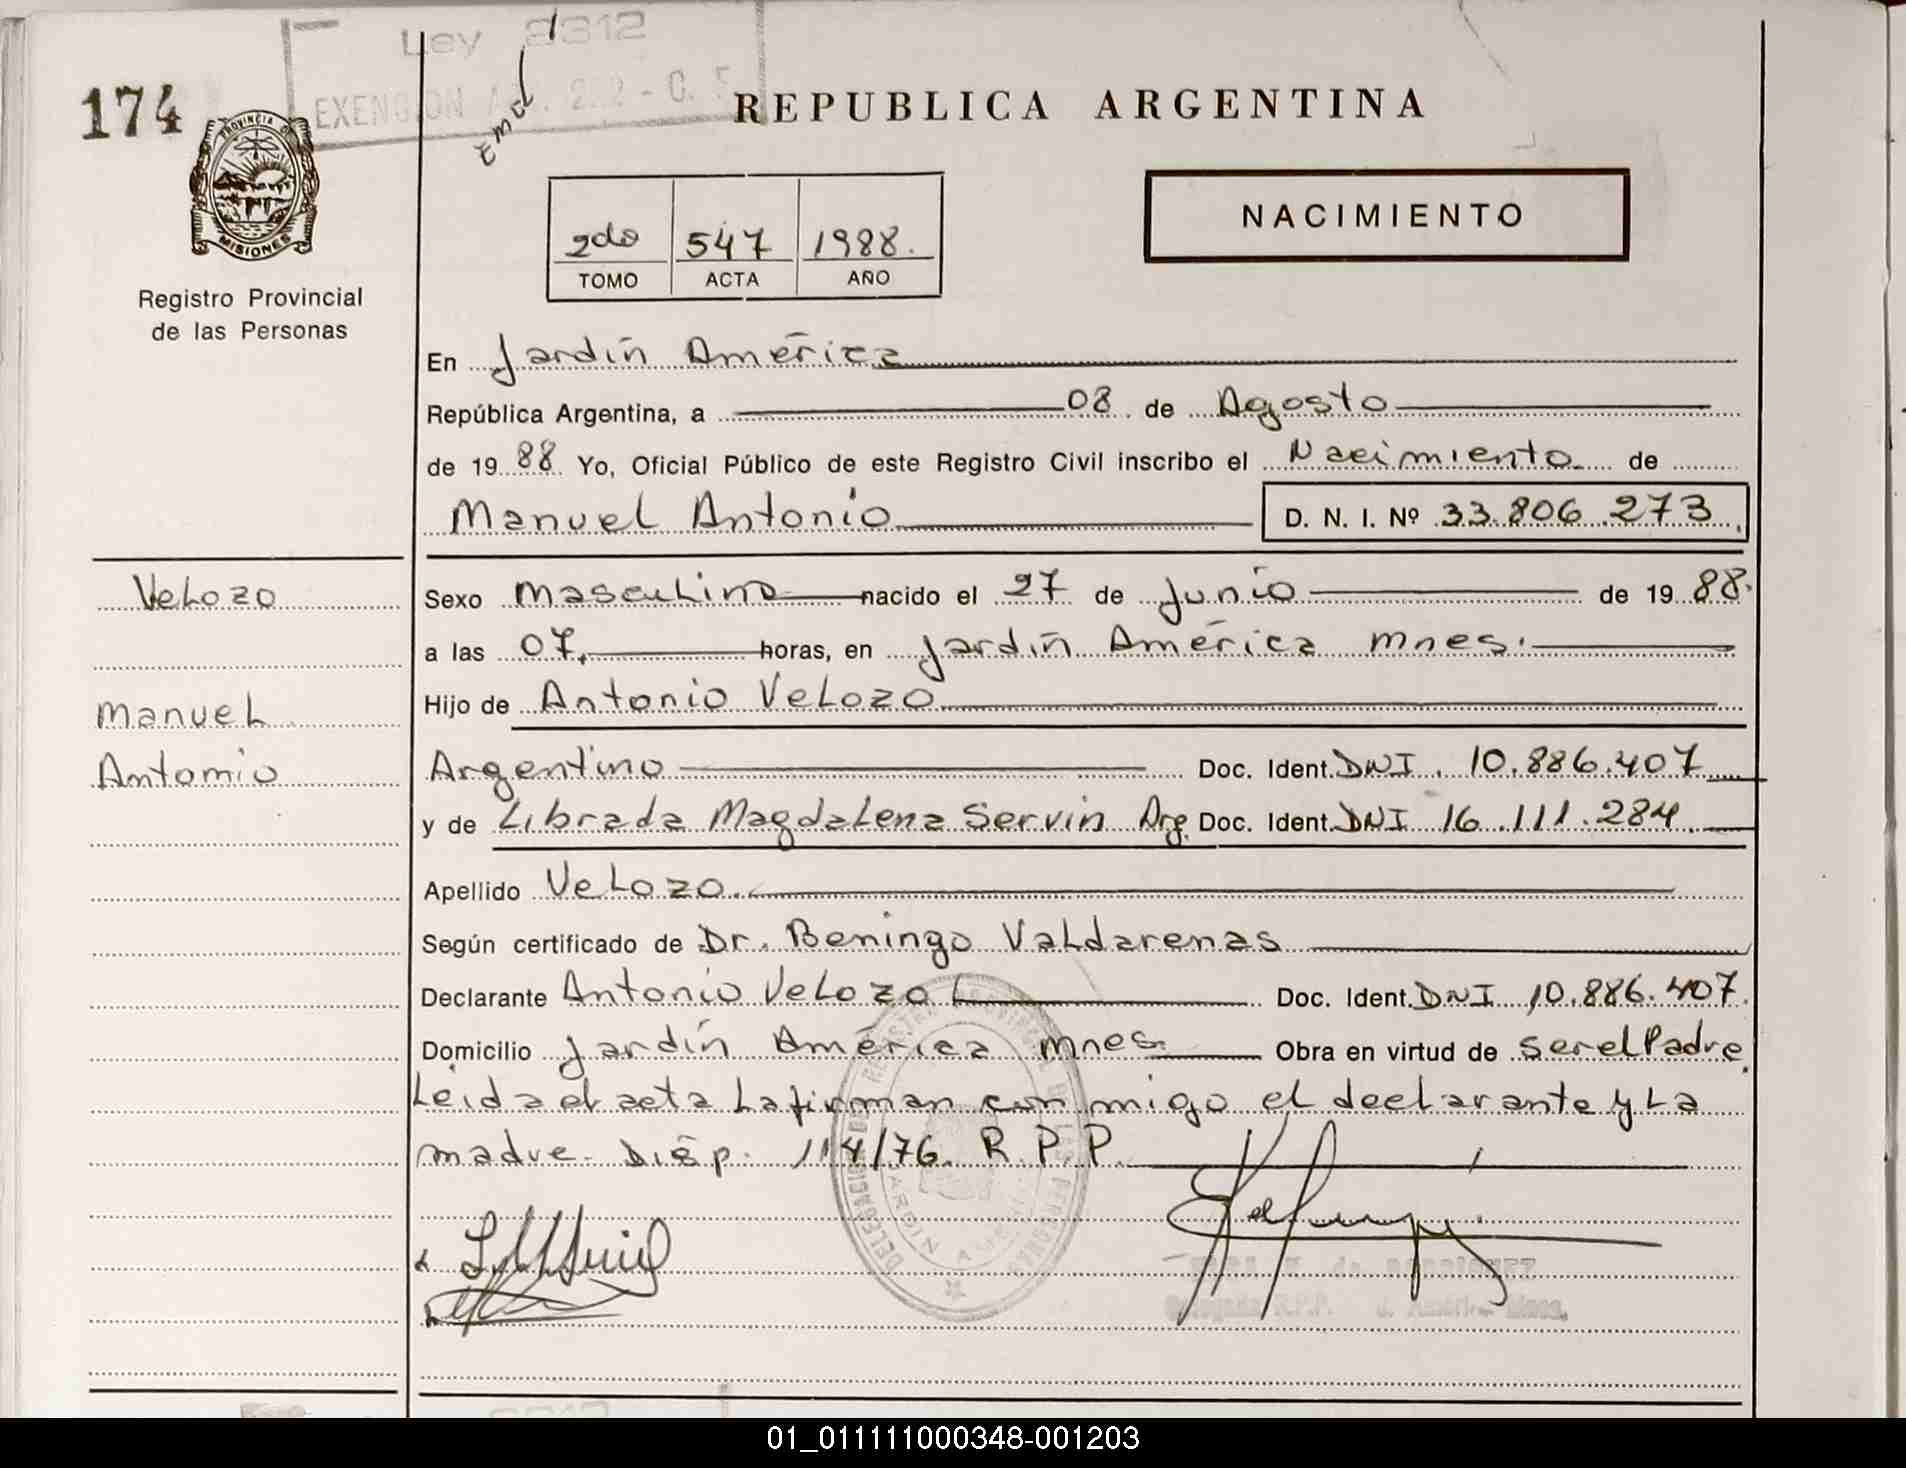 174
Ley 2312
EXENCION
Emd
REPUBLICA ARGENTINA
PROVINCIA D
MISIONES
Registro Provincial
de las Personas
2do 547 1988.
TOMO ACTA AÑO
NACIMIENTO
En Jardín América
República Argentina, a 08 de Agosto
de 19 88 Yo, Oficial Público de este Registro Civil inscribo el Nacimiento de
Manuel Antonio D. N. I. Nº 33.806.273
Velozo
Manuel
Antonio
Sexo Masculino nacido el 27 de Junio de 19 88.
a las 07, horas, en Jardín América Mnes.
Hijo de Antonio Velozo
Argentino Doc. Ident. DNI. 10.886.407
y de Librada Magdalena Servin Arg. Doc. Ident. DNI 16.111.284.
Apellido Velozo.
Según certificado de Dr. Beningo Valdarenas
Declarante Antonio Velozo Doc. Ident. DNI 10.886.407.
Domicilio Jardín América Mnes. Obra en virtud de ser el Padre.
Leida el acta la firman con migo el declarante y la
madre. Disp. 114/76. R.P.P.
DELEGACION DEL REGISTRO PROVINCIAL DE LAS PERSONAS
JARDIN AMERICA
de RODRIGUEZ
Delegada R.P.P. J. América Mnes.
01_011111000348-001203